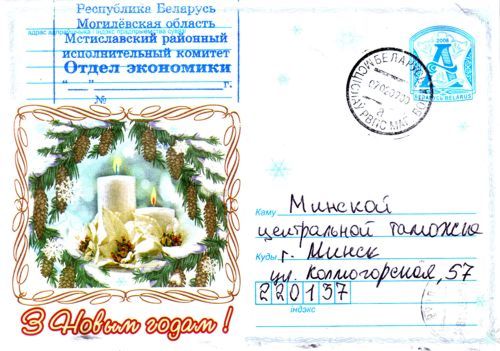 Республика Беларусь
Могилёвская область
Мстиславский районный
исполнительный комитет
Отдел экономики
"__"__________г.
№
2008
А
БЕЛАРУСЬ BELARUS
БЕЛАРУСЬ
а
Каму Минской
центральной таможне
Куды г. Минск
ул. Коммогорская, 57
220137
індэкс
З Новым годам!